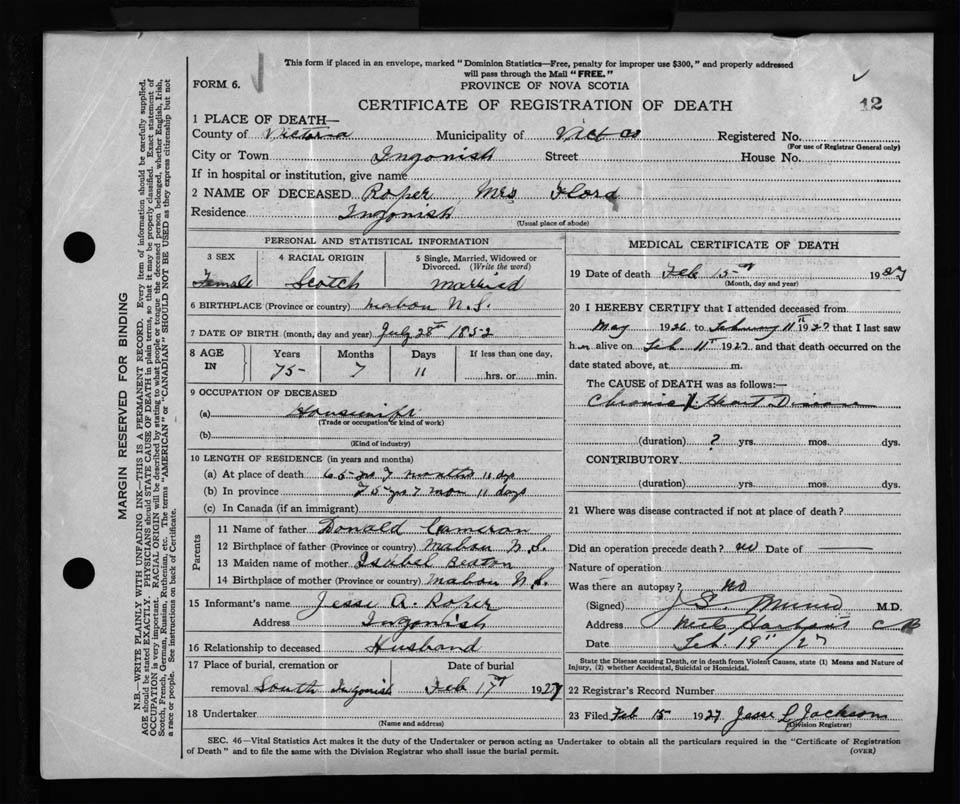 This form if placed in an envelope, marked "Dominion Statistics—Free, penalty for improper use $300," and properly addressed
will pass through the Mail "FREE."
FORM 6.
PROVINCE OF NOVA SCOTIA
CERTIFICATE OF REGISTRATION OF DEATH
12
1 PLACE OF DEATH—
County of Victoria Municipality of Vict Co Registered No.
(For use of Registrar General only)
City or Town Ingonish Street House No.
If in hospital or institution, give name
2 NAME OF DECEASED Roper Mrs Flora
Residence Ingonish
(Usual place of abode)
PERSONAL AND STATISTICAL INFORMATION
3 SEX 4 RACIAL ORIGIN 5 Single, Married, Widowed or Divorced. (Write the word)
Female Scotch Married
6 BIRTHPLACE (Province or country) Mabou N.S.
7 DATE OF BIRTH (month, day and year) July 28th 1852
8 AGE IN Years Months Days If less than one day,
75 7 11 hrs. or min.
9 OCCUPATION OF DECEASED
(a) Housewife
(Trade or occupation or kind of work)
(b)
(Kind of industry)
10 LENGTH OF RESIDENCE (in years and months)
(a) At place of death 65 yrs 7 months 11 dys
(b) In province 75 yrs 7 mon 11 days
(c) In Canada (if an immigrant)
Parents
11 Name of father Donald Cameron
12 Birthplace of father (Province or country) Mabou N.S.
13 Maiden name of mother Isabel Beaton
14 Birthplace of mother (Province or country) Mabou N.S.
15 Informant's name Jesse A. Roper
Address Ingonish
16 Relationship to deceased Husband
17 Place of burial, cremation or removal Date of burial
South Ingonish Feb 17th 1927
18 Undertaker
(Name and address)
MEDICAL CERTIFICATE OF DEATH
19 Date of death Feb 15th 1927
(Month, day and year)
20 I HEREBY CERTIFY that I attended deceased from
May 1926 to February 11th 1927 that I last saw
her alive on Feb. 11th 1927 and that death occurred on the
date stated above, at m.
The CAUSE of DEATH was as follows:—
Chronic Heart Disease
(duration) ? yrs. mos. dys.
CONTRIBUTORY
(duration) yrs. mos. dys.
21 Where was disease contracted if not at place of death?
Did an operation precede death? no Date of
Nature of operation
Was there an autopsy? no
(Signed) M.D.
Address Neils Harbour C B
Date Feb. 19th/27
State the Disease causing Death, or in death from Violent Causes, state (1) Means and Nature of
Injury, (2) whether Accidental, Suicidal or Homicidal.
22 Registrar's Record Number
23 Filed Feb 15 1927 Jesse L Jackson
(Division Registrar)
SEC. 46—Vital Statistics Act makes it the duty of the Undertaker or person acting as Undertaker to obtain all the particulars required in the "Certificate of Registration
of Death" and to file the same with the Division Registrar who shall issue the burial permit. (OVER)
MARGIN RESERVED FOR BINDING
N.B.—WRITE PLAINLY WITH UNFADING INK—THIS IS A PERMANENT RECORD. Every item of information should be carefully supplied.
AGE should be stated EXACTLY. PHYSICIANS should STATE CAUSE OF DEATH in plain terms, so that it may be properly classified. Exact statement of
OCCUPATION is very important. RACIAL ORIGIN will be described by stating to what people or tongue the deceased person belonged, whether English, Irish,
Scotch, French, German, Russian, Ruthenian, etc. The terms "AMERICAN" or "CANADIAN" SHOULD NOT BE USED as they express citizenship but not
a race or people. See instructions on back of Certificate.